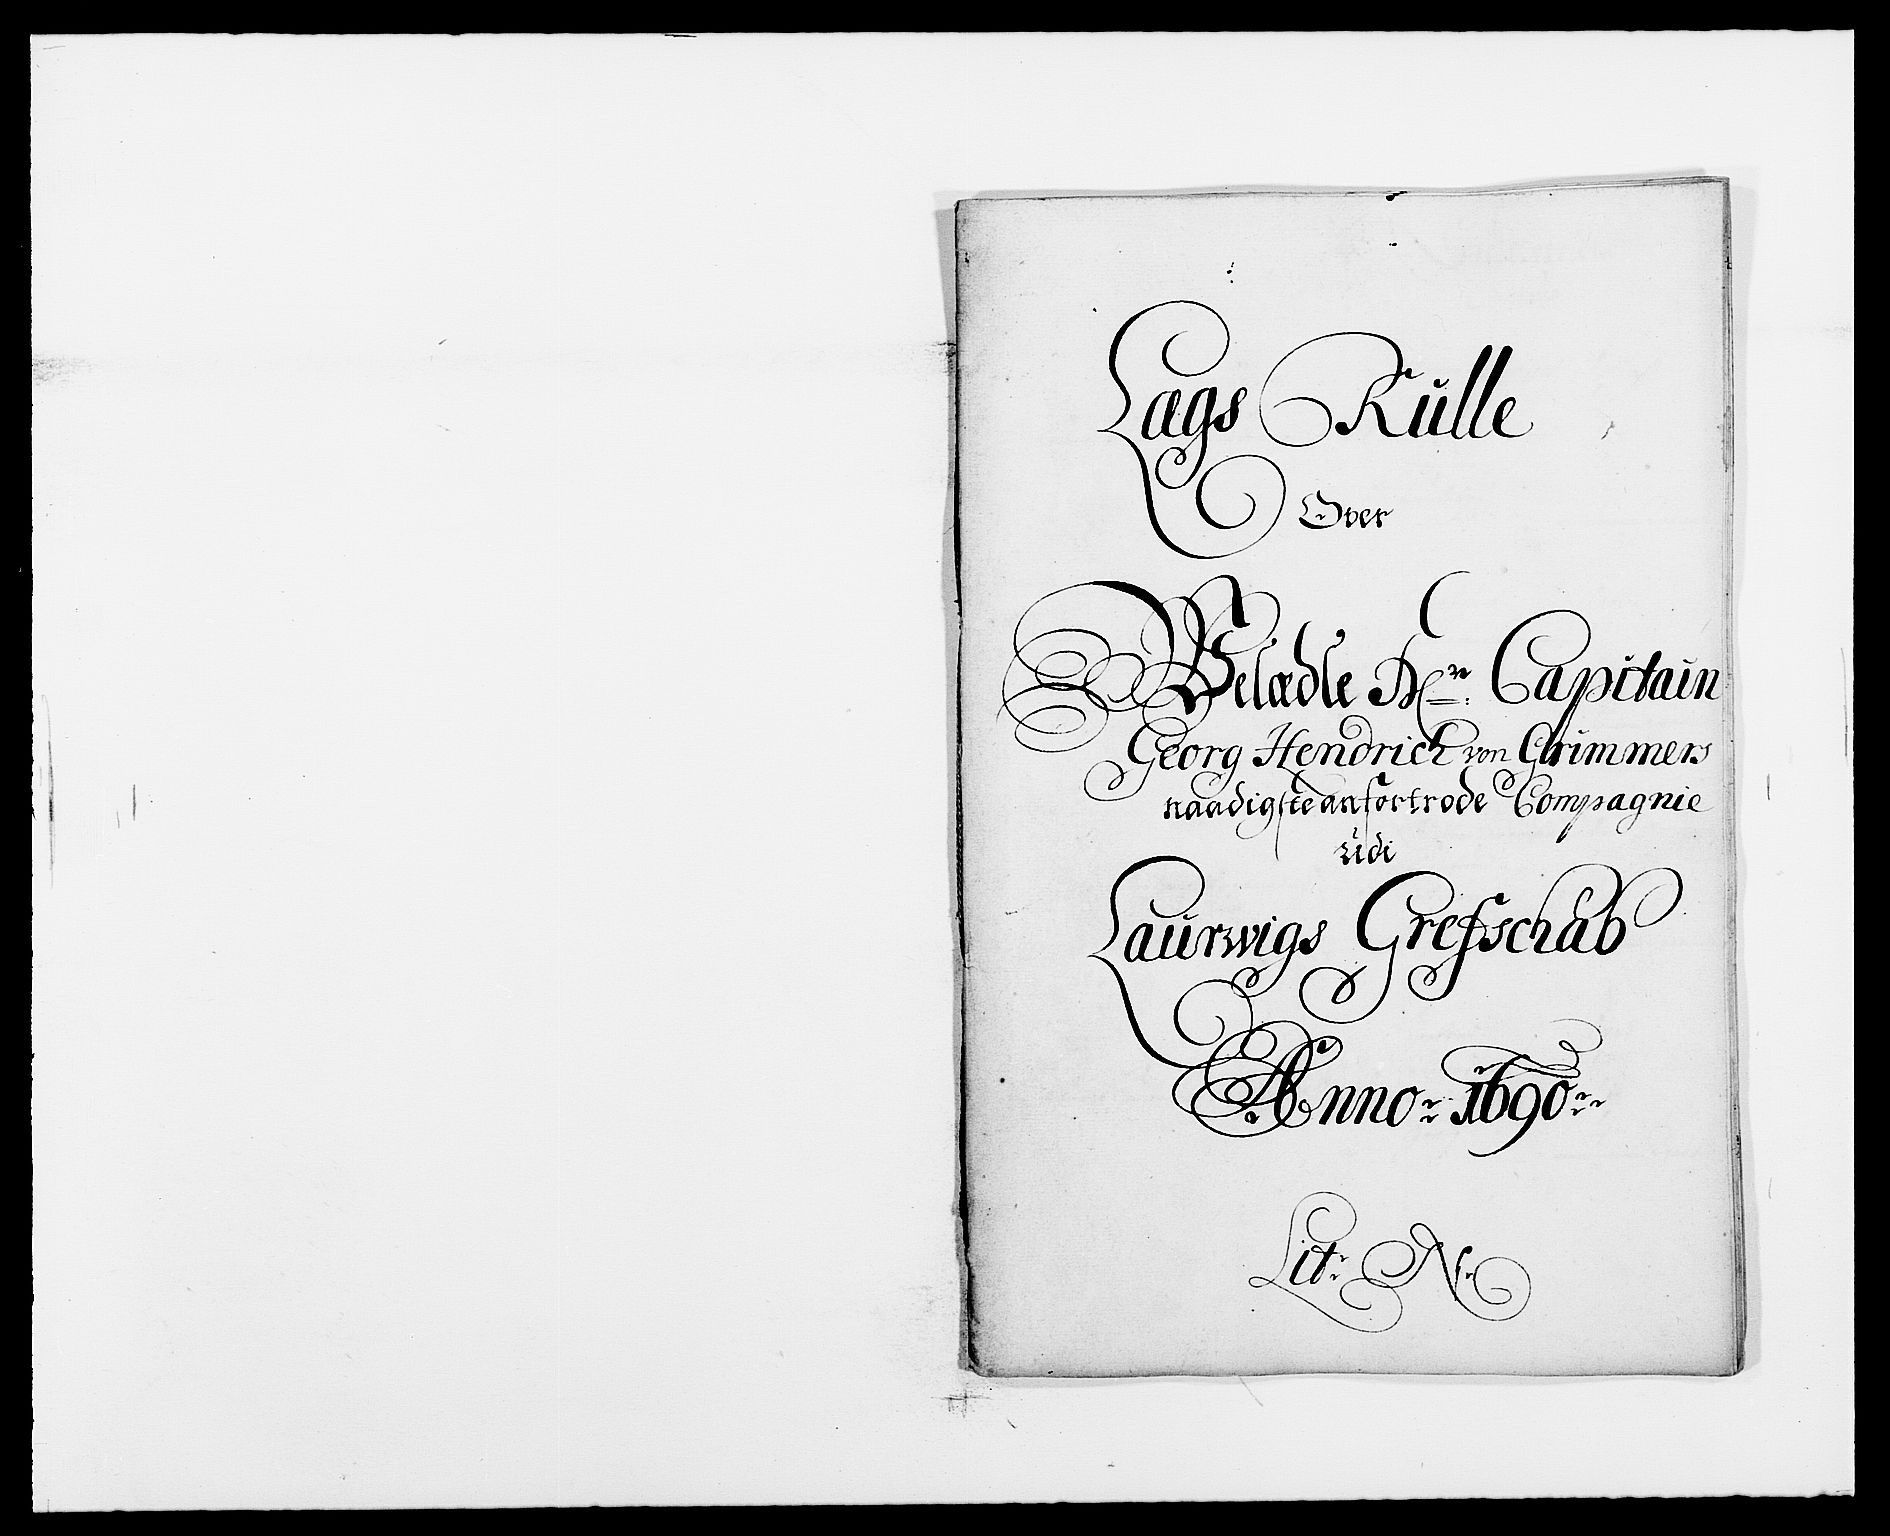 Lægs Rulle
Over
Velædle Hr: Capitain
Georg Hendrich von Grimmers
naadigste anfortrode Compagnie
udi
Laurwigs Grefschab
Anno: 1690:
Lit: N: